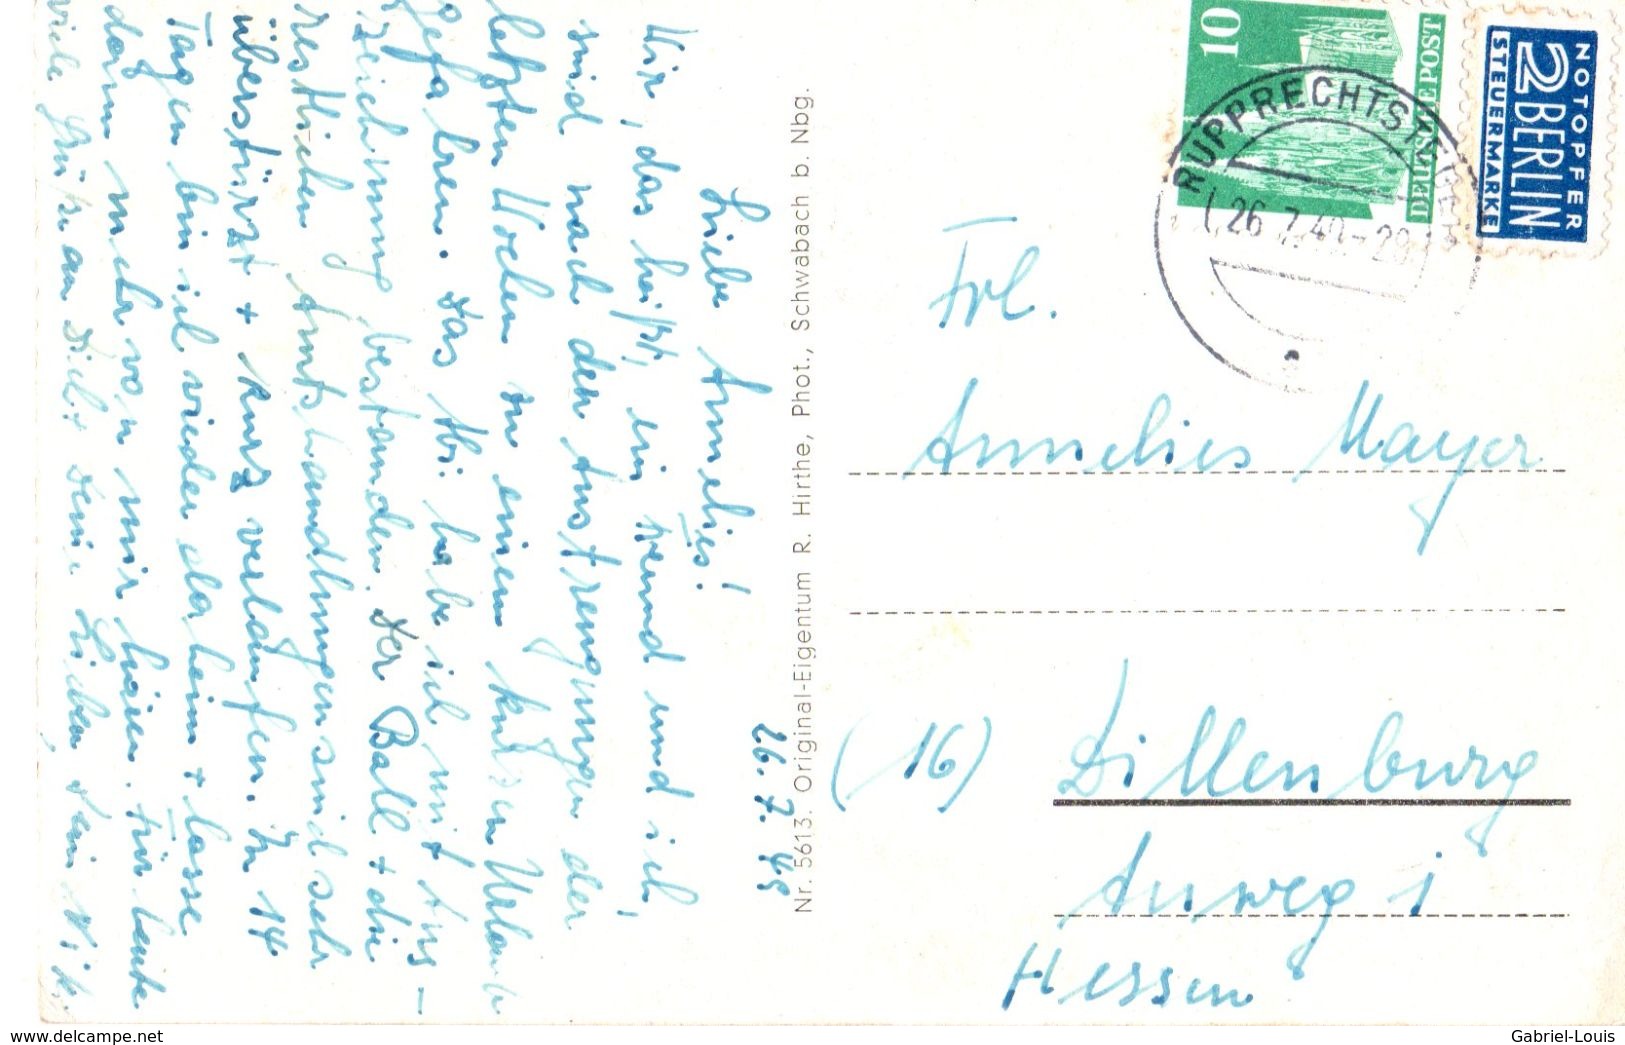 26. 7. 49
Liebe Annelies!
Wir, das heißt, ein Freund und ich,
sind nach den Anstrengungen der
letzten Wochen zu einem kurzen Urlaub
gefahren. Das Abi habe ich mit Aus-
zeichnung bestanden. Der Ball + die
restlichen Amtshandlungen sind sehr
überstürzt + kurz verlaufen. In 14
Tagen bin ich wieder daheim + lasse
dann mehr von mir hören. Für heute
viele Grüße an Dich + Deine Lieben, Dein
Nr. 5613. Original-Eigentum R. Hirthe, Phot., Schwabach b. Nbg.
10
DEUTSCHE POST
NOTOPFER
2 BERLIN
STEUERMARKE
RUPPRECHTSTEGEN
26.7.49.-20
Frl.
Annelies Mayer
(16) Dillenburg
Auweg 1
Hessen
delcampe.net
Gabriel-Louis